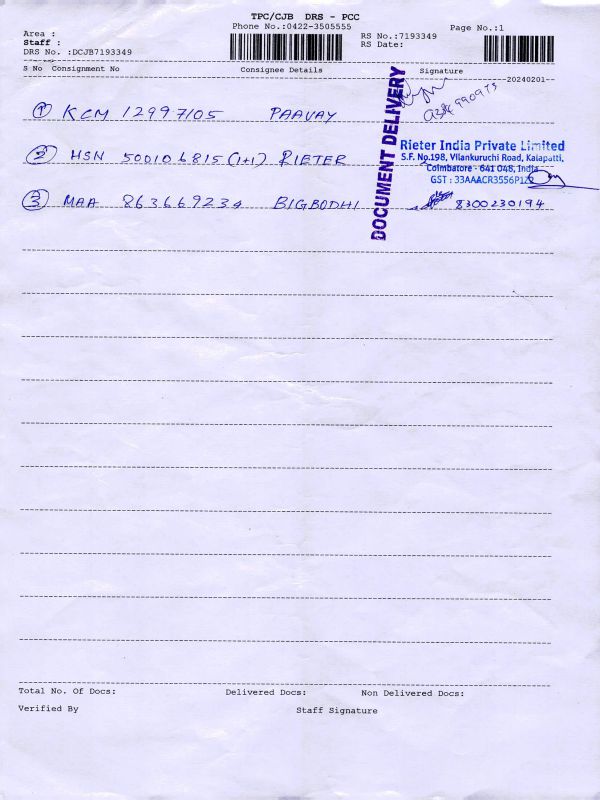 TPC/CJB DRS - PCC
Phone No.:0422-3505555
Page No.:1
Area :
Staff :
DRS No. :DCJB7193349
RS No.:7193349
RS Date:
S No Consignment No Consignee Details Signature
20240201
DOCUMENT DELIVERY
1 KCM 12997105 PAAVAY
2 HSN 500106815 (1+1) RIETER
Rieter India Private Limited
S.F. No.198, Vilankuruchi Road, Kalapatti,
Coimbatore - 641 048, India
GST : 33AAACR3556P1Z
3 MAA 863669234 BIGBODHI 8300230194
Total No. Of Docs: Delivered Docs: Non Delivered Docs:
Verified By Staff Signature